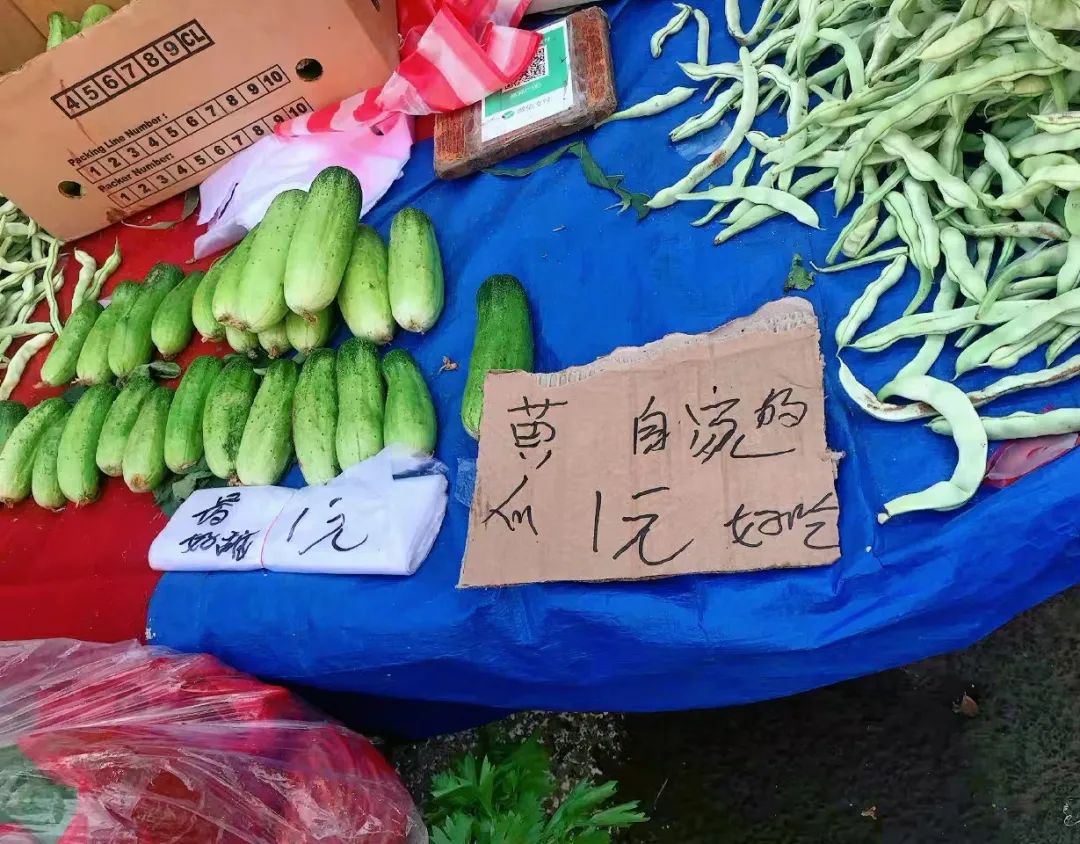 456789CL
Packing Line Number:
1 2 3 4 5 6 7 8 9 10
Packer Number:
1 2 3 4 5 6 7 8 9 10
黄 自家的
瓜 1元 好吃
1元